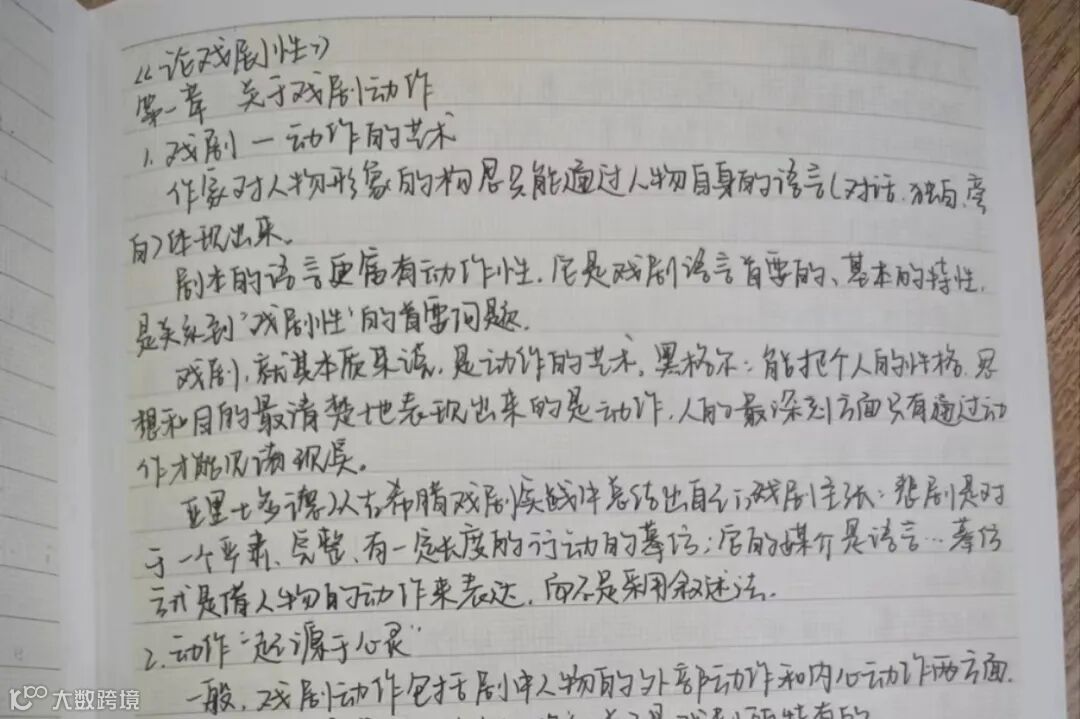 《论戏剧性》
第一章 关于戏剧动作
1. 戏剧—动作的艺术
作家对人物形象的构思只能通过人物自身的语言(对话、独白、旁
白)体现出来。
剧本的语言更富有动作性，它是戏剧语言首要的、基本的特性，
是关系到"戏剧性"的首要问题。
戏剧，就其本质来说，是动作的艺术。黑格尔：能把个人的性格、思
想和目的最清楚地表现出来的是动作，人的最深刻方面只有通过动
作才能见诸现实。
亚里士多德从古希腊戏剧实践中总结出自己的戏剧主张：悲剧是对
于一个严肃、完整、有一定长度的行动的摹仿；它的媒介是语言…摹仿
就是借人物的动作来表达，而不是采用叙述法。
2. 动作"起源于心灵"
一般，戏剧动作包括剧中人物的外部动作和内心动作两方面.
是戏剧所特有的
大数跨境